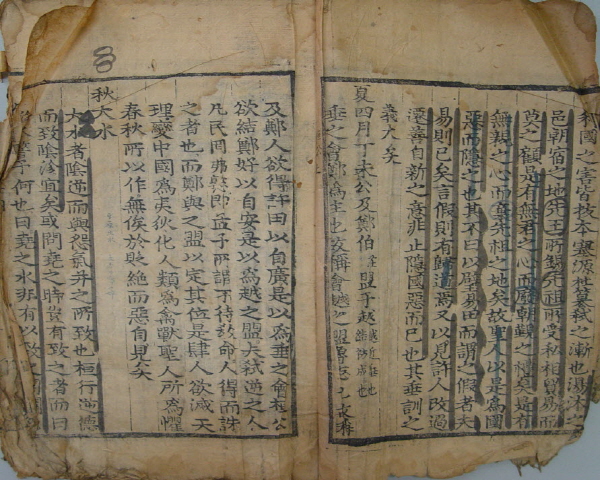 國之害皆拔本塞源杜篡弒之漸也湯沐之
邑朝宿之地先王所錫先祖所受私相貿易而
莫之顧是有無君之心而廢朝覲之禮矣是有
無親之心而棄先祖之地矣故聖人以是爲國
惡而隱之也其不曰以璧易田而謂之假者夫
易則已矣言假則有歸道焉又以見許人改過
遷善自新之意非止隱國惡而已也其垂訓之
義大矣
夏四月丁未公及鄭伯盟于越
垂之會鄭爲主也故稱會越之盟魯志也
及鄭人欲得許田以自廣是以爲垂之會桓公
欲結鄭好以自安是以爲越之盟夫弒逆之人
凡民罔弗憝即孟子所謂不待教命人得而誅
之者也而鄭與之盟以定其位是肆人欲滅天
理變中國爲夷狄化人類爲禽獸聖人所爲懼
春秋所以作無俟於貶絕而惡自見矣
秋大水
大水者陰逆而與怨氣并之所致也桓行逆德
而致陰沴宜矣或問堯之時豈有致之者而曰
何也曰堯之水非有以致之